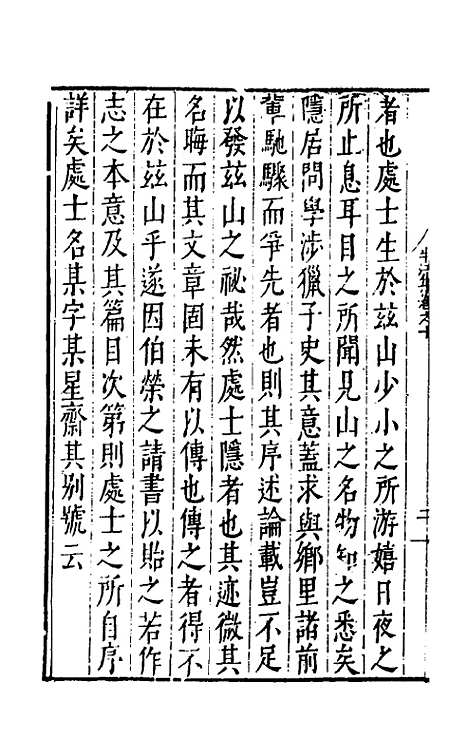 者也處士生於玆山少小之所游嬉日夜之
所止息耳目之所聞見山之名物知之悉矣
隱居問學涉獵子史其意蓋求與鄉里諸前
輩馳驟而爭先者也則其序述論載豈不足
以發玆山之祕哉然處士隱者也其迹微其
名晦而其文章固未有以傳也傳之者得不
在於玆山乎遂因伯榮之請書以貽之若作
志之本意及其篇目次第則處士之所自序
詳矣處士名某字某星齋其别號云